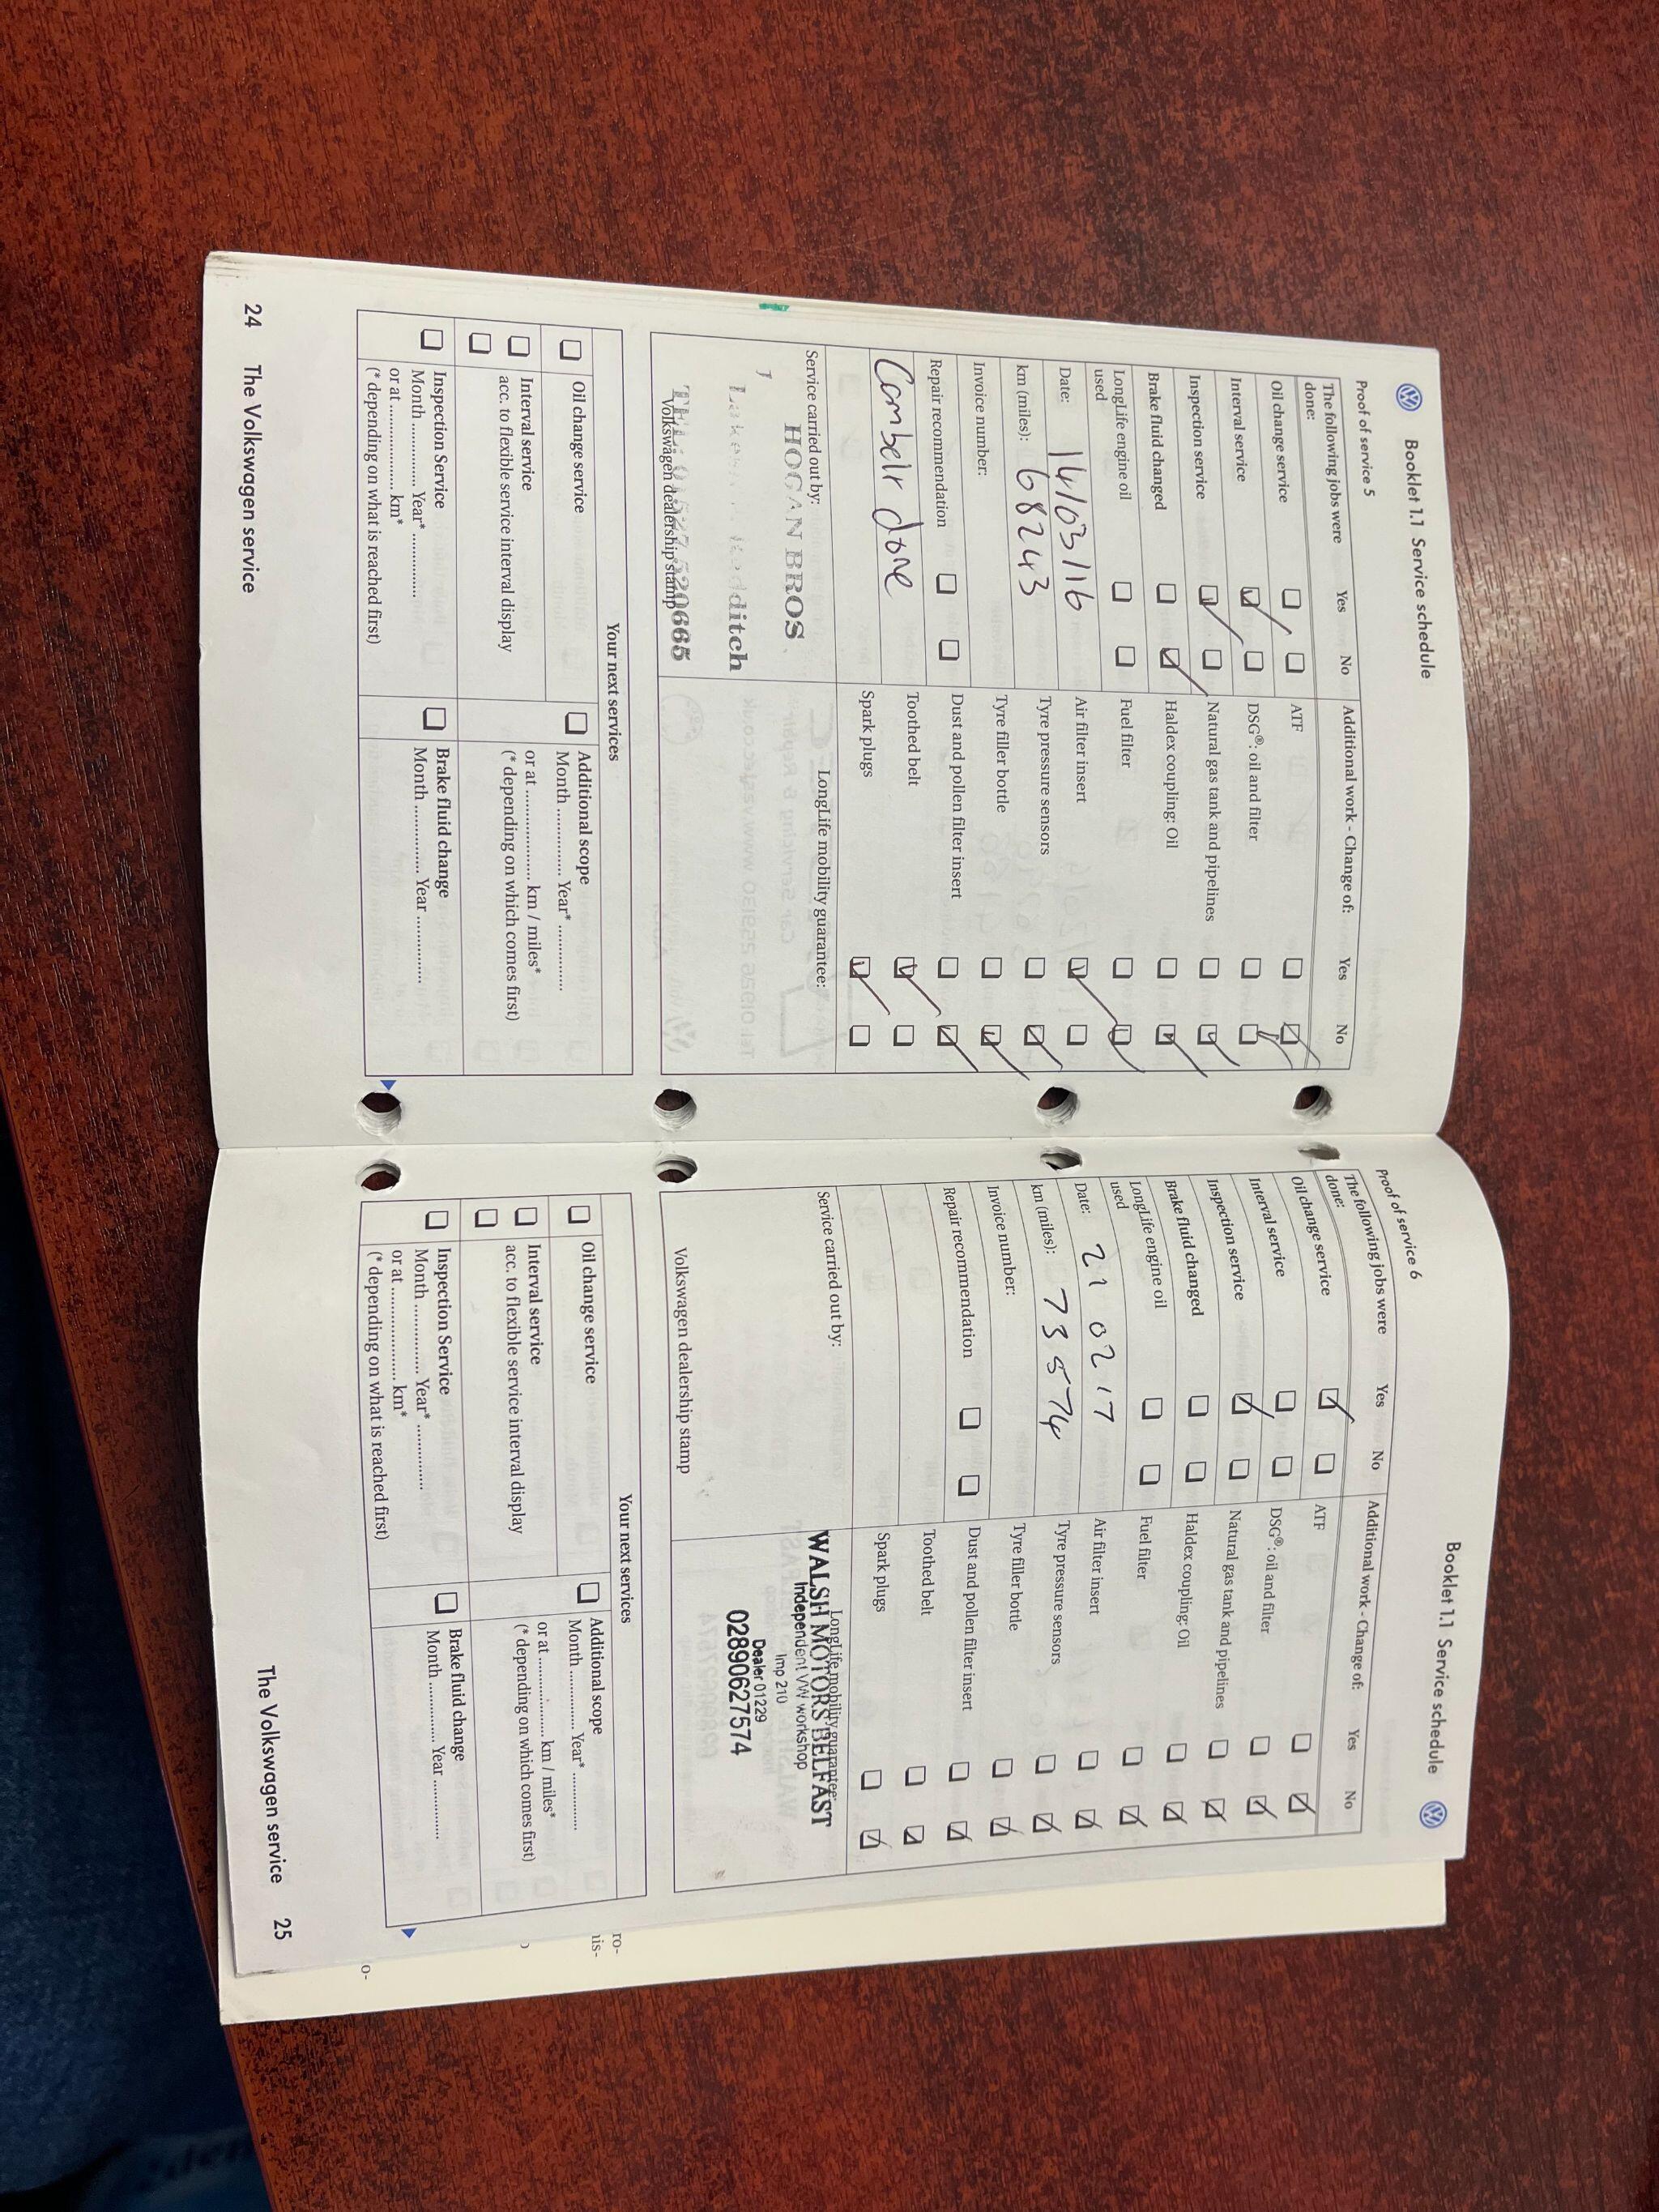 Booklet 1.1 Service schedule
Proof of service 5
The following jobs were done:
Yes
No
Additional work - Change of:
Yes
No
Oil change service
ATF
Interval service
DSG®: oil and filter
Inspection service
Natural gas tank and pipelines
Brake fluid changed
Haldex coupling: Oil
LongLife engine oil used
Fuel filter
Date: 14/03/16
Air filter insert
km (miles): 68243
Tyre pressure sensors
Invoice number:
Tyre filler bottle
Repair recommendation
Dust and pollen filter insert
Cambelt done
Toothed belt
Spark plugs
Service carried out by:
LongLife mobility guarantee:
HOGAN BROS
Redditch
TEL: 01527 520665
Volkswagen dealership stamp
Your next services
Oil change service
Additional scope
Month .............. Year* ..............
or at ................... km / miles*
(* depending on which comes first)
Interval service
acc. to flexible service interval display
Inspection Service
Month .............. Year* ..............
or at ................... km*
(* depending on what is reached first)
Brake fluid change
Month .............. Year ..............
24 The Volkswagen service
Booklet 1.1 Service schedule
Proof of service 6
The following jobs were done:
Yes
No
Additional work - Change of:
Yes
No
Oil change service
ATF
Interval service
DSG®: oil and filter
Inspection service
Natural gas tank and pipelines
Brake fluid changed
Haldex coupling: Oil
LongLife engine oil used
Fuel filter
Date: 21 02 17
Air filter insert
km (miles): 73574
Tyre pressure sensors
Invoice number:
Tyre filler bottle
Repair recommendation
Dust and pollen filter insert
Toothed belt
Spark plugs
Service carried out by:
LongLife mobility guarantee:
WALSH MOTORS BELFAST
Independent VW workshop
Imp 210
Dealer 01229
02890627574
Volkswagen dealership stamp
Your next services
Oil change service
Additional scope
Month .............. Year* ..............
or at ................... km / miles*
(* depending on which comes first)
Interval service
acc. to flexible service interval display
Inspection Service
Month .............. Year* ..............
or at ................... km*
(* depending on what is reached first)
Brake fluid change
Month .............. Year ..............
The Volkswagen service 25
ro-
nis-
o-